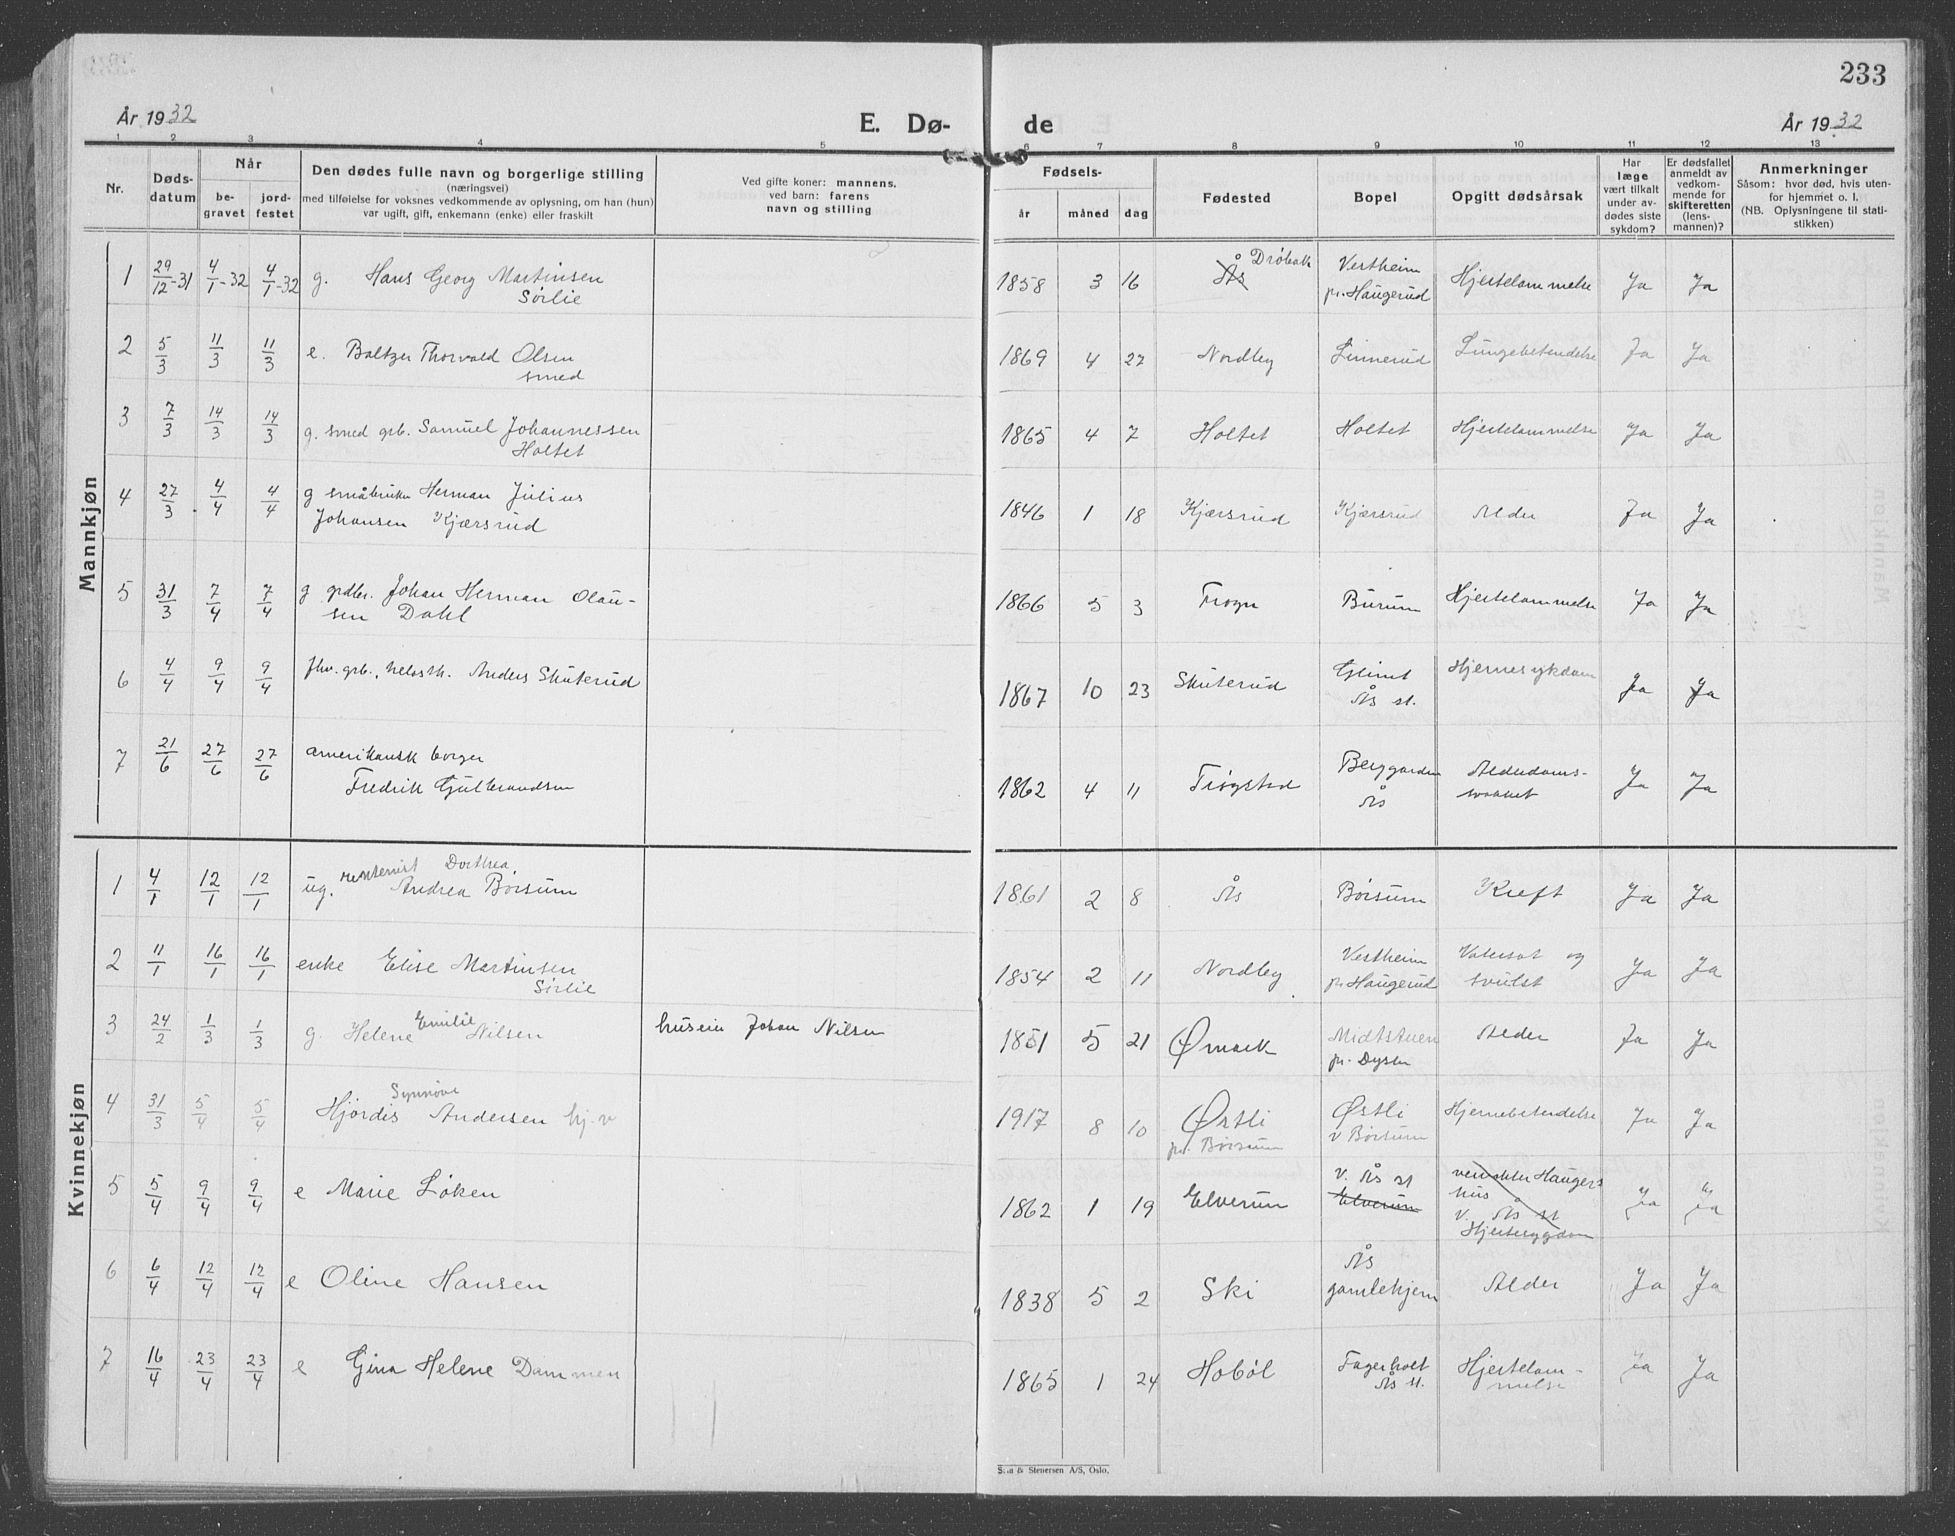 233
År 1932 E. Dø- de År 1932
1 2 3 4 5 6 7 8 9 10 11 12 13
Nr.
Døds-
datum
Når
be-
gravet
jord-
festet
Den dødes fulle navn og borgerlige stilling
(næringsvei)
med tilføielse for voksnes vedkommende av oplysning, om han (hun)
var ugift, gift, enkemann (enke) eller fraskilt
Ved gifte koner: mannens.
ved barn: farens
navn og stilling
Fødsels-
år måned dag
Fødested
Bopel
Opgitt dødsårsak
Har
læge
vært tilkalt
under av-
dødes siste
sykdom?
Er dødsfallet
anmeldt av
vedkom-
mende for
skifteretten
(lens-
mannen)?
Anmerkninger
Såsom: hvor død, hvis uten-
for hjemmet o. l.
(NB. Oplysningene til stati-
stikken)
Mannkjøn
1 29/12-31 4/1-32 4/1-32 g. Hans Georg Martinsen
Sørlie
1858 3 16 Ås Drøbak Vestheim
pr. Haugerud Hjertelammelse Ja Ja
2 5/3 11/3 11/3 e. Baltzer Thorvald Olsen
smed
1869 4 27 Nordby Linnerud Lungebetendelse Ja Ja
3 7/3 14/3 14/3 g. smed grb. Samuel Johannessen
Holtet
1865 4 7 Holtet Holtet Hjertelammelse Ja Ja
4 27/3 4/4 4/4 g småbruker Herman Julius
Johansen Kjærsrud
1846 1 18 Kjærsrud Kjærsrud Alder Ja Ja
5 31/3 7/4 7/4 g grdbr. Johan Herman Olau-
sen Dahl
1866 5 3 Frogn Burum Hjertelammelse Ja Ja
6 4/4 9/4 9/4 fhv. grb., Anders Skuterud
1867 10 23 Skuterud Glimt
Ås st. Hjernesykdom Ja Ja
7 21/6 27/6 27/6 amerikansk borger
Fredrik Gulbrandsen
1862 4 11 Trøgstad Berggarden
Ås Alderdoms-
svakhet Ja Ja
Kvinnekjøn
1 4/1 12/1 12/1 ug. rentenist Dorthea
Andrea Børsum
1861 2 8 Ås Børsum Kreft Ja Ja
2 11/1 16/1 16/1 enke Elise Martinsen
Sørlie
1854 2 11 Nordby Vestheim
pr. Haugerud Vatersot og
svulst Ja Ja
3 24/2 1/3 1/3 g. Helene Emilie Nilsen
huseier Johan Nilsen
1851 5 21 Ømark Midtstuen
pr. Dyster Alder Ja Ja
4 31/3 5/4 5/4 Hjørdis Synnøve Andersen hj. v
1917 8 10 Østli
pr. Børsum Østli
v Børsum Hjernebetendelse Ja Ja
5 5/4 9/4 9/4 e Marie Løken
1862 1 19 Elverum v. Ås st
Elverum Haugers
hus
v. Ås st
Hjertesygdom Ja Ja
6 6/4 12/4 12/4 e Oline Hansen
1838 5 2 Ski Ås
gamlehjem Alder Ja Ja
7 16/4 23/4 23/4 e Gina Helene Dammen
1865 1 24 Hobøl Fagerholt
Ås st. Hjertelam-
melse Ja Ja
& Stenersen A/S, Oslo.